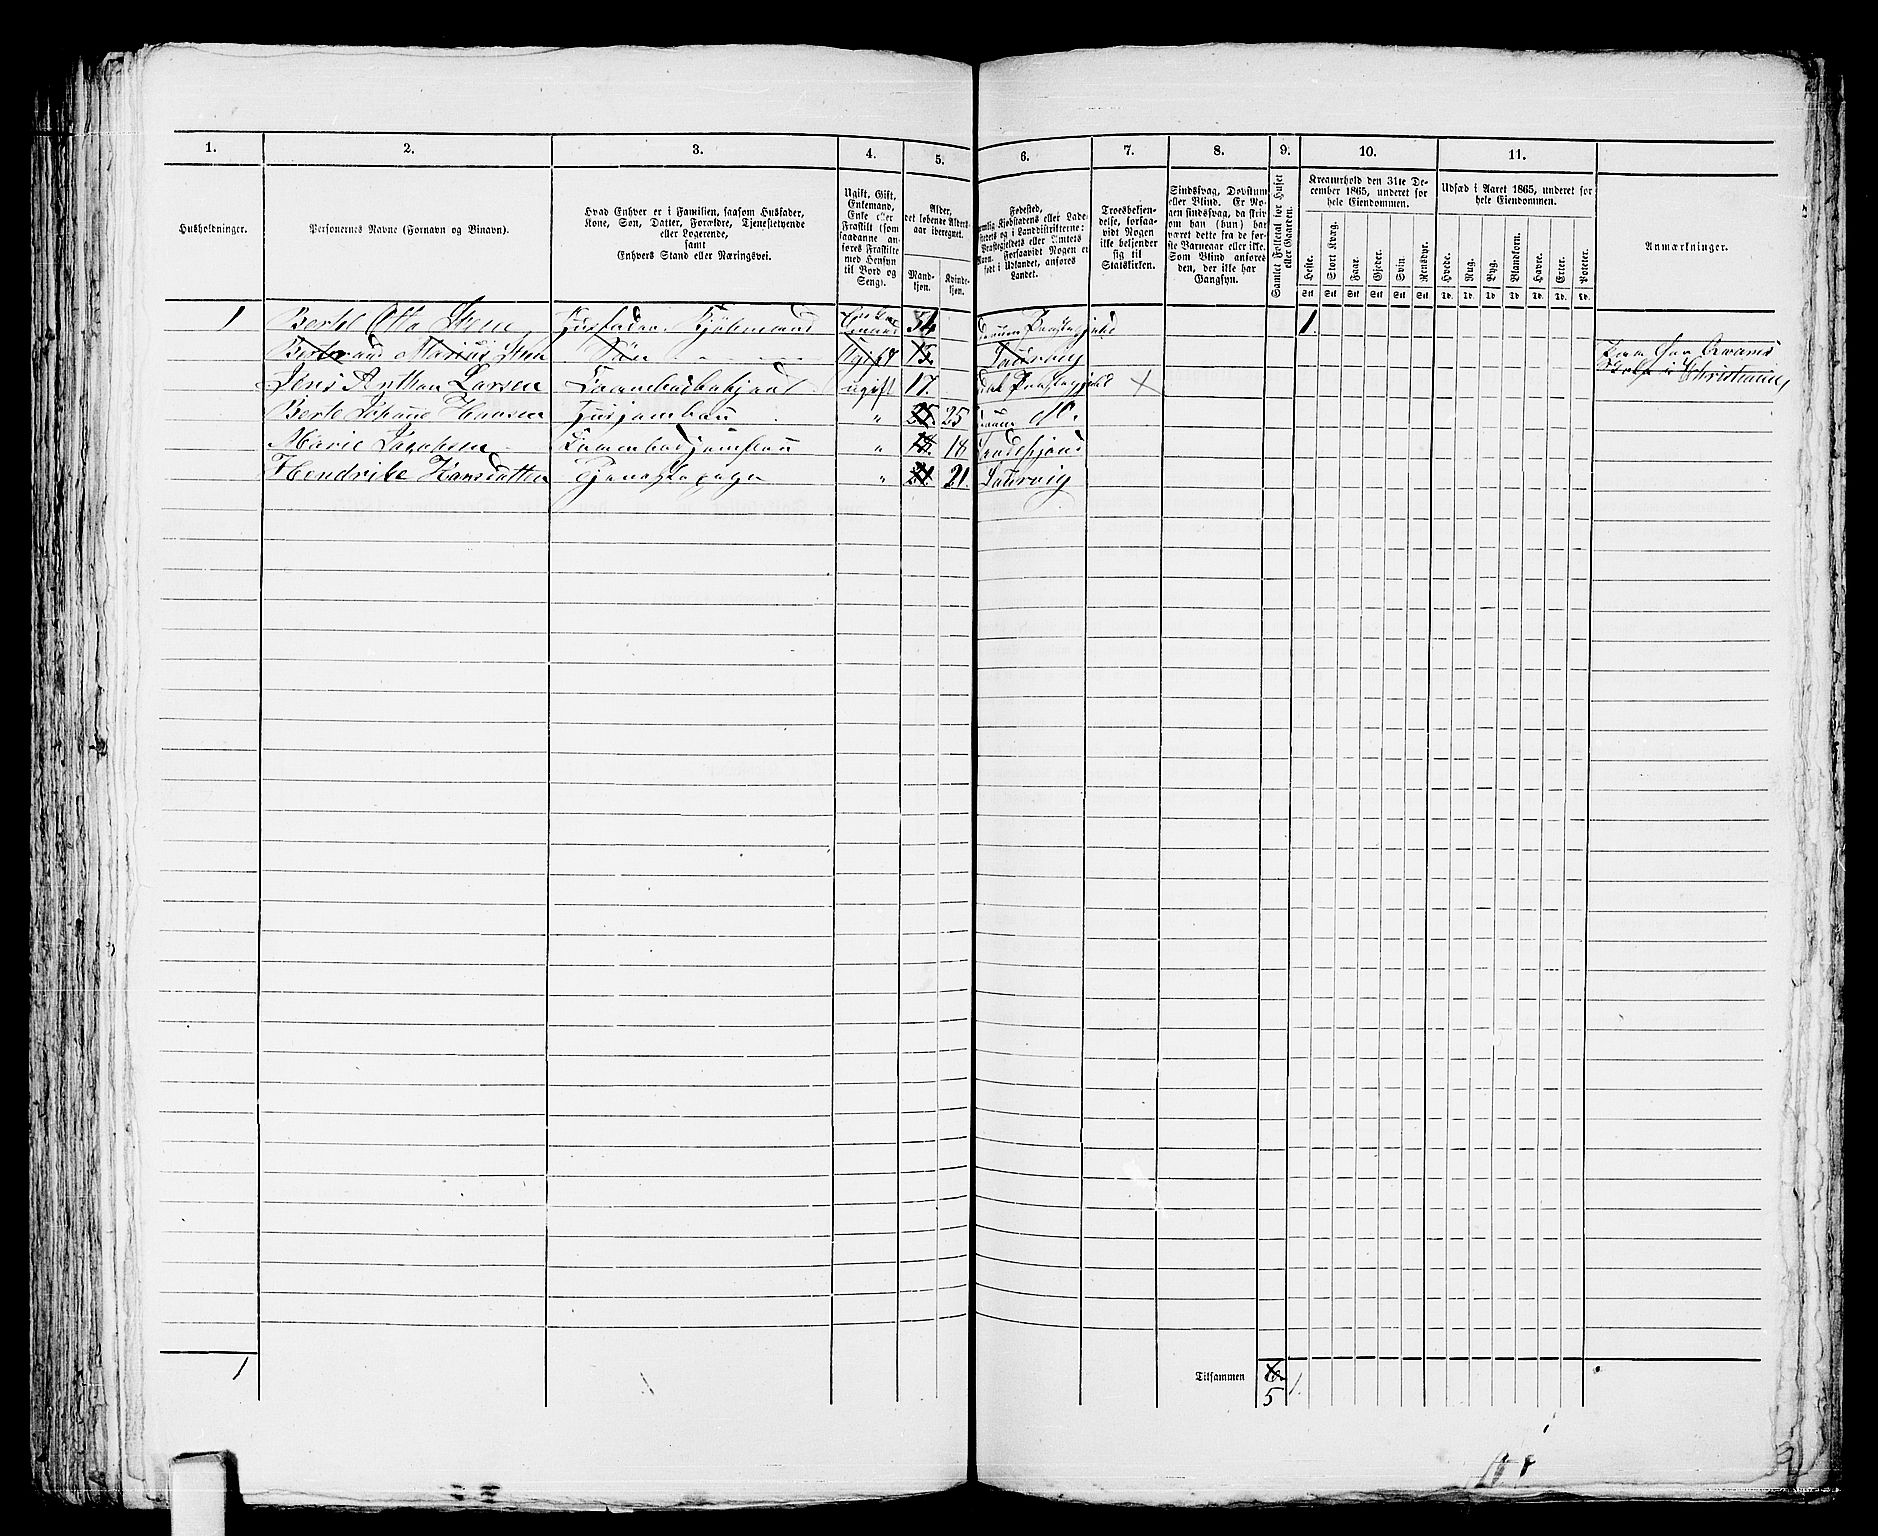 1. 2. 3. 4. 5. 6. 7. 8. 9. 10. 11.
Husholdninger.
Personernes Navne (Fornavn og Binavn).
Hvad Enhver er i Familien, saasom Husfader,
Kone, Søn, Datter, Forældre, Tjenestetyende
eller Logerende,
samt
Enhvers Stand eller Næringsvei.
Ugift, Gift,
Enkemand,
Enke eller
Fraskilt (som
saadanne an-
føres Fraskilte
med Hensyn
til Bord og
Seng).
Alder,
det løbende Alders-
aar iberegnet.
Mand-
kjøn.
Kvinde-
kjøn.
Fødested,
Kjøbstadens eller Lade-
stedets og i Landdistrikterne:
Præstegjeldets eller Amtets
Navn. Forsaavidt Nogen er
født i Udlandet, anføres
Landet.
Troesbekjen-
delse, forsaa-
vidt Nogen
ikke bekjender
sig til
Statskirken.
Sindssvag, Døvstum
eller Blind. Er No-
gen sindssvag, da skriv
om han (hun) har
været dette fra de før-
ste Barneaar eller ikke.
Som Blind anføres
den, der ikke har
Gangsyn.
Samlet Folketal for Huset
eller Gaarden.
Kreaturhold den 31te De-
cember 1865, underet for
hele Eiendommen.
Heste. Stort Kvæg. Faar. Gjeder. Svin. Rensdyr.
Stk Stk Stk Stk Stk Stk
Udsæd i Aaret 1865, underet for
hele Eiendommen.
Hvede. Rug. Byg. Blandkorn. Havre. Erter. Poteter.
Td. Td. Td. Td. Td. Td. Td.
Anmærkninger.
1 Bertel Otto Steen Husfader. Kjøbmand Enkemand 54 Præstegjeld 1.
Bertrand Marius Steen Søn Ugift 13 Laurvig
Jens Anthon Larsen Krambodbetjent ugift 17. Præstegjeld X
Berte Johanne Hansen Husjomfru " 25 25 do.
Marie Jacobsen Krambodjomfru " 18. 18
Hendrikke Hansdatter Tjenestepige " 21. 21. Laurvig
Skole i Christiania,
1
Tilsammen 6. 1.
5